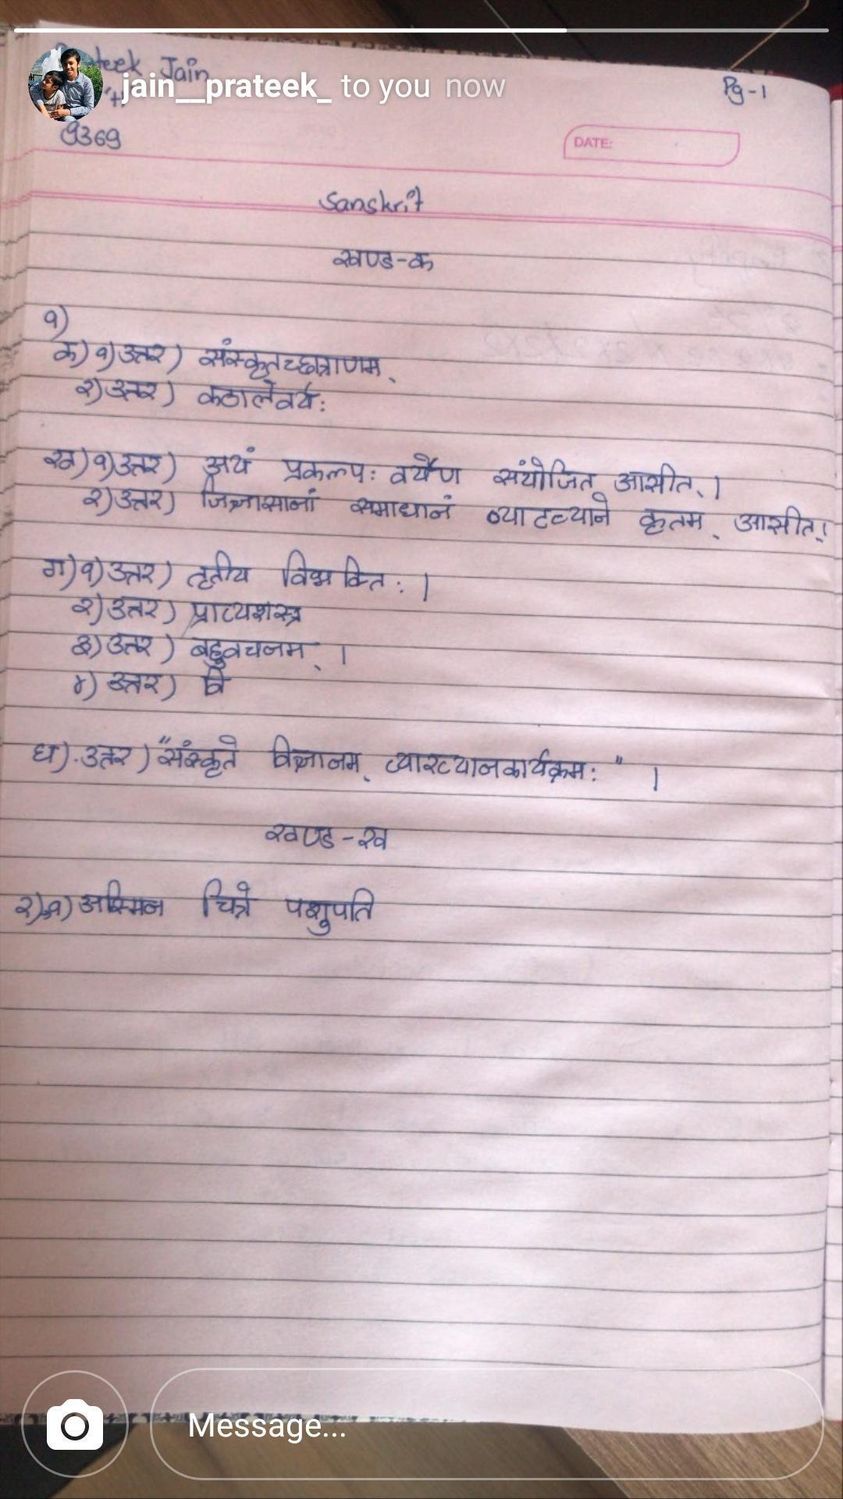 Prateek Jain
jain__prateek_ to you now
Pg-1
9369
DATE:
Sanskrit
खण्ड-क
१)
क) १) उत्तर) संस्कृतच्छात्राणम्
२) उत्तर) कठालेवर्य:
ख) १) उत्तर) अयं प्रकल्प: वर्येण संयोजित आसीत् ।
२) उत्तर) जिज्ञासानां समाधानं कृतम् आसीत् ।
ग) १) उत्तर) तृतीय विभक्ति: ।
२) उत्तर) प्राच्यशस्त्र
३) उत्तर) बहुवचनम् ।
४) उत्तर) वि
घ) उत्तर) "संस्कृते विज्ञानम् व्याख्यानकार्यक्रम: " ।
खण्ड-ख
२) अस्मिन चित्रे पशुपति
Message...